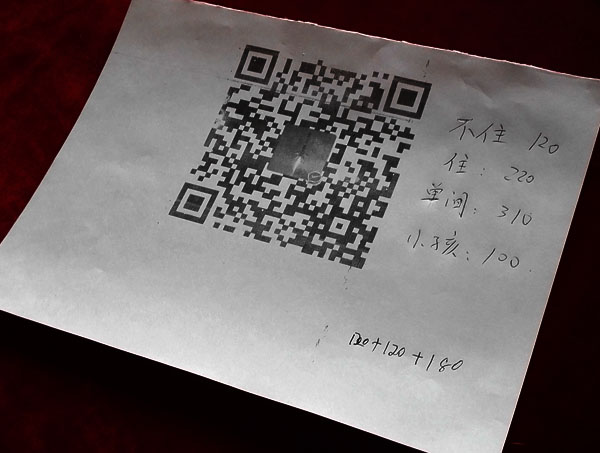 不住 120
住: 220
单间: 310
小孩: 100
120+120+180